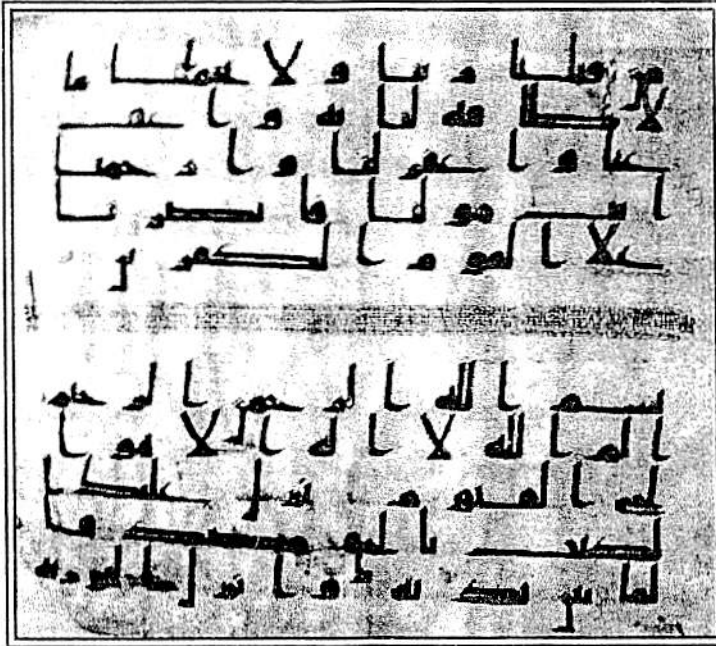 من قبلنا ربنا ولا تحملنا ما
لا طاقه لنا به واعف
عنا واغفر لنا وارحمنا
انت مولنا فانصرنا
علا القوم الكفرين
بسم الله الرحمن الرحيم
الم الله لا اله الا هو ا
لحي القيوم نزل عليك ا
لكتب بالحق مصدقا
لما بين يديه وانزل التوريه